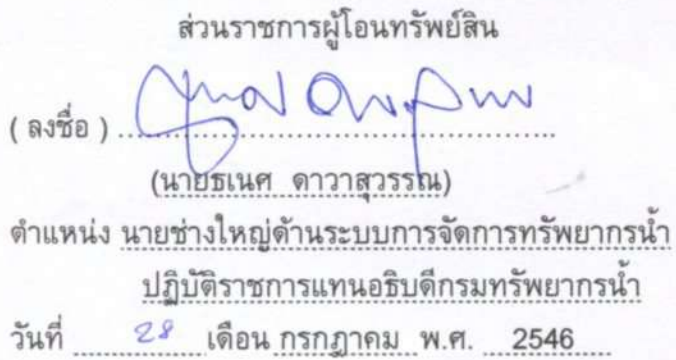 ส่วนราชการผู้โอนทรัพย์สิน
( ลงชื่อ )
(นายธเนศ ดาวาสุวรรณ)
ตำแหน่ง นายช่างใหญ่ด้านระบบการจัดการทรัพยากรน้ำ
ปฏิบัติราชการแทนอธิบดีกรมทรัพยากรน้ำ
วันที่ 28 เดือน กรกฎาคม พ.ศ. 2546